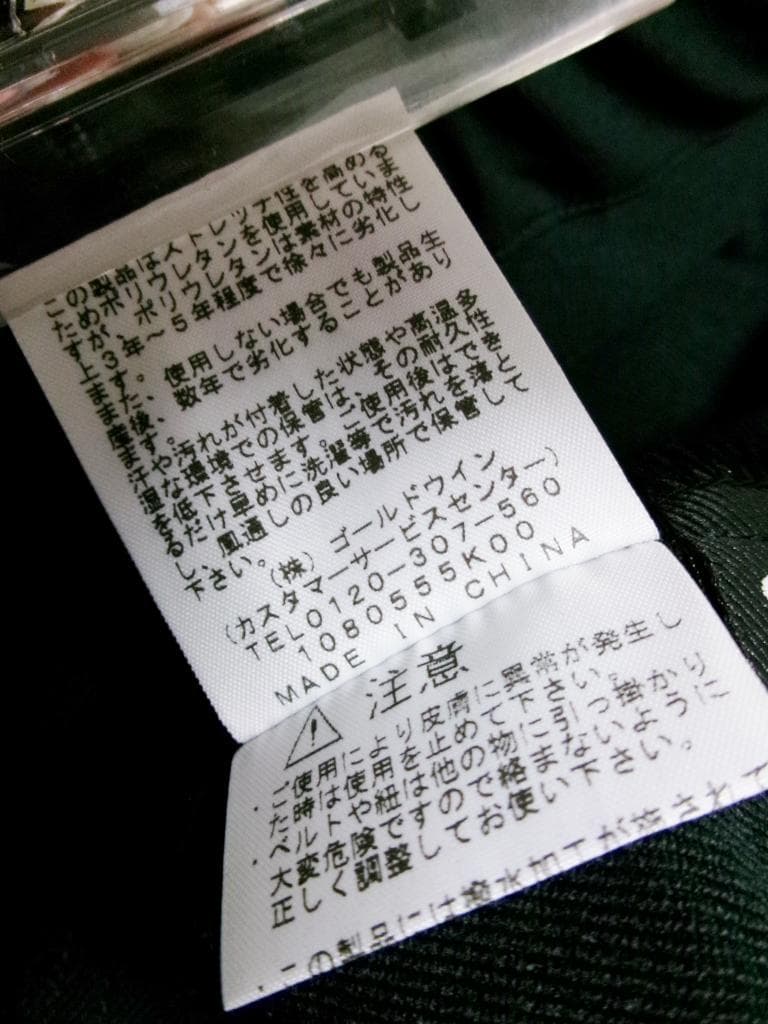 この製品はストレッチ性を高める
ためポリウレタンを使用していま
すが、ポリウレタンは素材の特性
上3年～5年程度で徐々に劣化し
ます。使用しない場合でも製品生
産後、数年で劣化することがあり
ます。
汗や汚れが付着した状態や高温多
湿な環境での保管は、その耐久性
を低下させます。ご使用後はでき
るだけ早めに洗濯等で汚れを落と
し、風通しの良い場所で保管して
下さい。
(株) ゴールドウイン
(カスタマーサービスセンター)
TEL0120-307-560
1080555K00
MADE IN CHINA
注意
・ご使用により皮膚に異常が発生し
た時は使用を止めて下さい。
・ベルトや紐は他の物に引っ掛かり
大変危険ですので絡まないように
正しく調整してお使い下さい。
・この製品には撥水加工が施されて